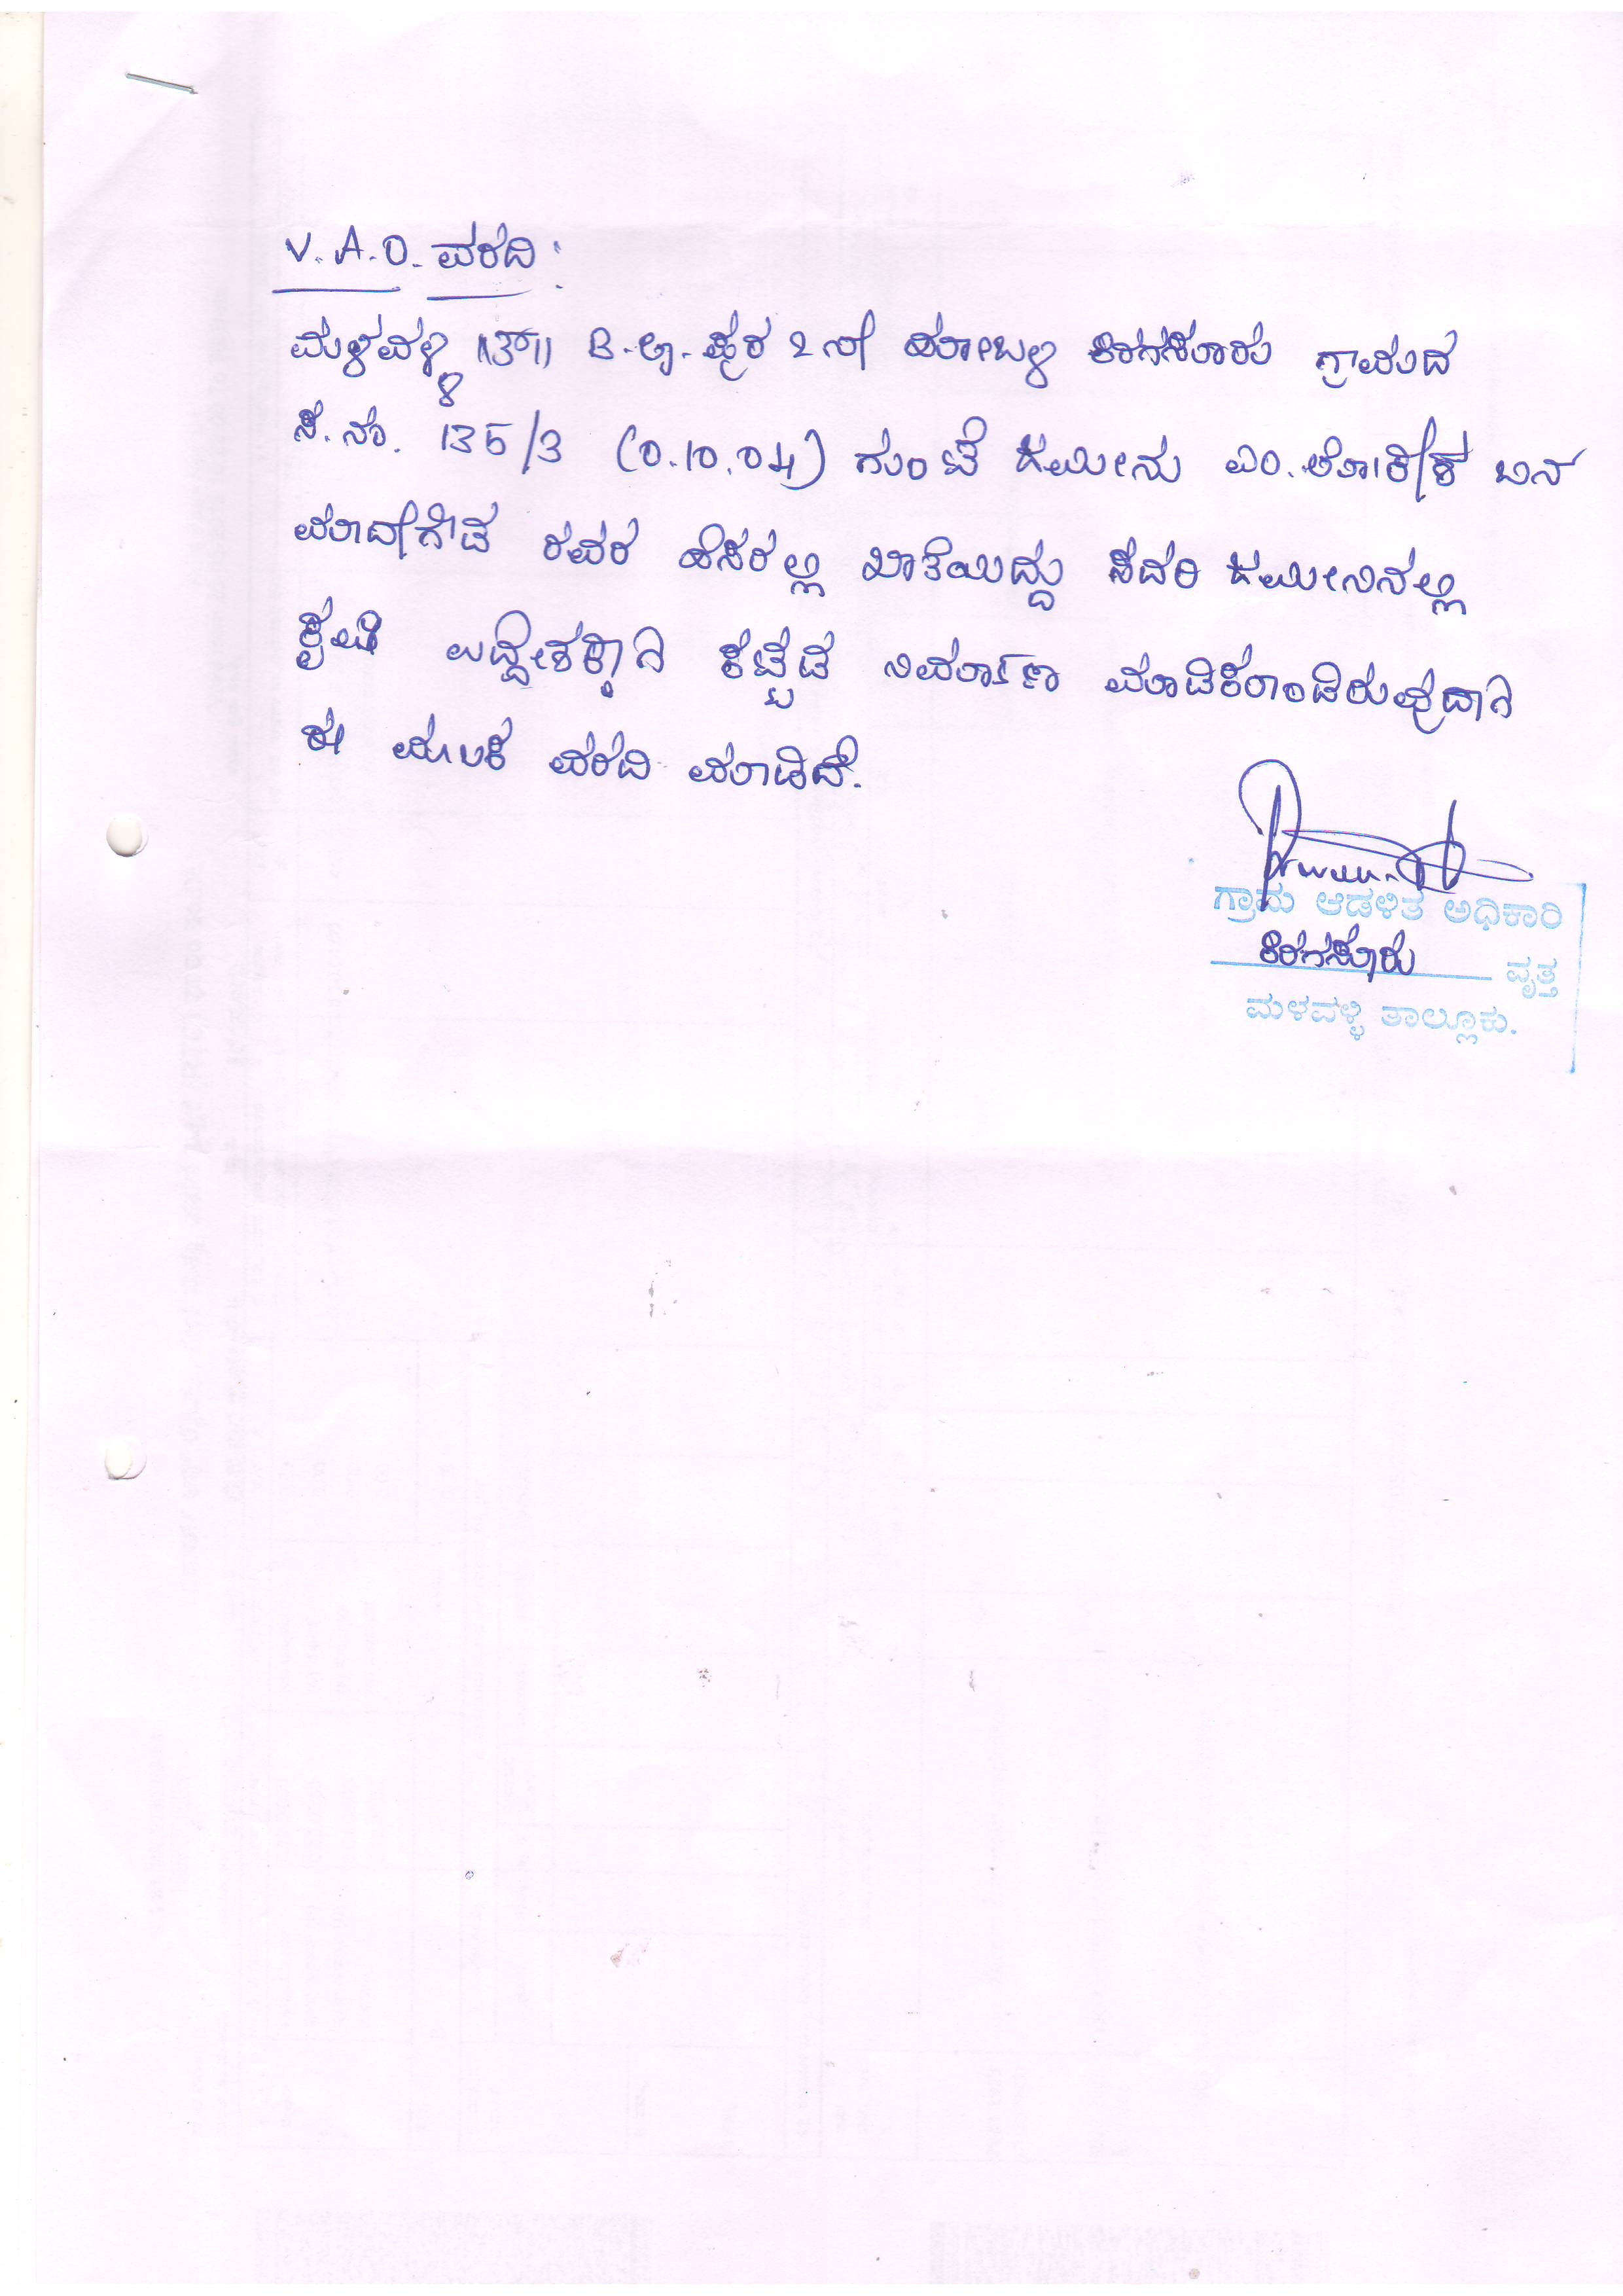 V.A.O. ವರದಿ:
ಮಳವಳ್ಳಿ ತಾ|| B.ಜಿ.ಪುರ 2ನೇ ಹೋಬಳಿ ಕಿರಗಸೂರು ಗ್ರಾಮದ
ಸ.ನಂ. 135/3 (0.10.04) ಗುಂಟೆ ಜಮೀನು ಎಂ. ಬಿನ್
ಮಾದೇಗೌಡ ರವರ ಹೆಸರಲ್ಲಿ ಖಾತೆಯಿದ್ದು ಸದರಿ ಜಮೀನಿನಲ್ಲಿ
ಕೃಷಿ ಉದ್ದೇಶಕ್ಕಾಗಿ ಕಟ್ಟಡ ನಿರ್ಮಾಣ ಮಾಡಿಕೊಂಡಿರುವುದಾಗಿ
ಈ ಮೂಲಕ ವರದಿ ಮಾಡಿದೆ.
ಗ್ರಾಮ ಆಡಳಿತ ಅಧಿಕಾರಿ
ಕಿರಗಸೂರು ವೃತ್ತ
ಮಳವಳ್ಳಿ ತಾಲ್ಲೂಕು.